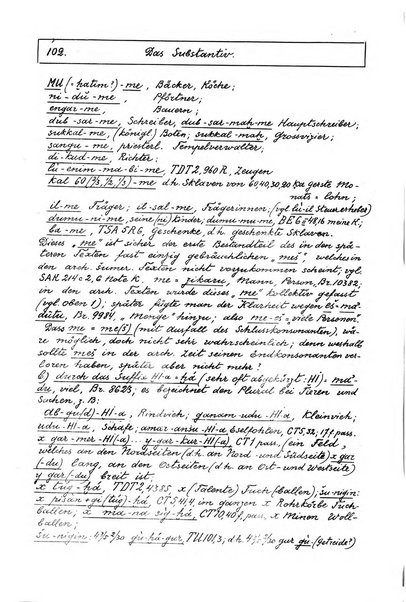 102. Das Substantiv.
MU (= ḫatim?)-me, Bäcker, Köche;
ni-dŭ-me, Pförtner;
engar-me, Bauern;
dub-sar-me, Schreiber, dub-sar-maḫ-me Hauptschreiber;
sukkal-me, (königl) Boten; sukkal-maḫ, Grossvizier;
sangu-me, priesterl. Tempelverwalter;
di-kud-me, Richter;
lu-enim-ma-bi-me, TDT 2, 960 R, Zeugen
kal 60 me d.h. Sklaven von 60, 40, 30, 20 Ka Gerste Mo-
nats = lohn;
il-me Träger; il-sal-me, Trägerinnen; (vgl lú-il Steuererheber)
dumu-ni-me, seine Kinder; dumu mu-me, meine K;
ba-me, TSA 5 R 6, Geschenke, d.h. geschenkte Sklaven.
Dieses „me" ist sicher der erste Bestandteil des in den spä-
teren Texten fast einzig gebräuchlichen „meš", welches in
den arch. sumer. Texten nicht vorzukommen scheint; vgl.
SAK 24 c 2, 6 Note k. me = zikaru, Mann, Person, Br. 10382,
in den arch. Texten wurde dieses „me" kollektiv gefasst
(vgl oben 1); später fügte man der Klarheit wegen eš = ma-
dūtu, Br. 9984, „Menge" hinzu; also me-eš = „viele Personen".
Dass me = me(š) (mit Ausfall des Schlusskonsonanten), wä-
re möglich, doch nicht sehr wahrscheinlich; denn weshalb
sollte meš in der arch. Zeit seinen Endkonsonanten ver-
loren haben, später aber nicht mehr?
b) durch das Suffix ḫi-a = ḫá (sehr oft abgekürzt: ḪI) = mā-
du, viel, Br. 8623; es bezeichnet den Plural bei Tieren und
Sachen, z. B:
áb-gu(d)-ḪI-a, Rindvieh; ganam-udu-ḪI-a, Kleinvieh;
udu-ḪI-a, Schafe; amar-ansu-ḪI-a Eselfohlen, CT 5, pass.
x gar-mer-ḪI-a... y-gar-kur-ḪI(a) CT 1 pass, (ein Feld,
welches an den Nordseiten (d.h. an Nord- und Südseite) x gar
(-du) lang, an den Ostseiten (d.h. an Ost- und Westseite)
y gar(-du) breit ist.
x túg-ḫá, TDT 2, x (Talente) Tuch (ballen); šu-nigin:
x pisan + gi (túg)-ḫá CT 5 in ganzen x Rohrkörbe Tuch-
ballen; x ma-na síg-ḫá, CT 10, pass, x Minen Woll-
ballen;
šu-nigin: gú-ḫá-gur, TU 101, 3; d.h. gur gú (Getreide?)